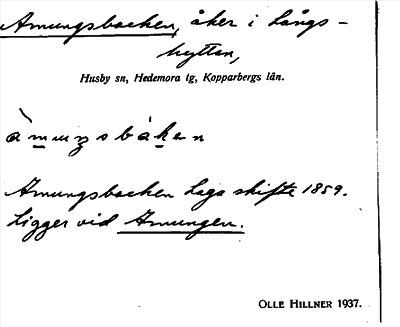 Amungsbacken, åker i Långs-
hyttan,
Husby sn, Hedemora tg, Kopparbergs län.
àmuŋsbáken
Amungsbacken Laga skifte 1859.
Ligger vid Amungen.
OLLE HILLNER 1937.